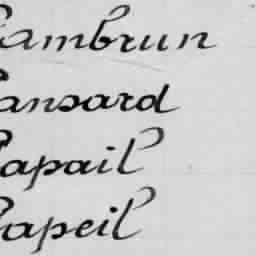 ambrun
ansard
apail
apeil